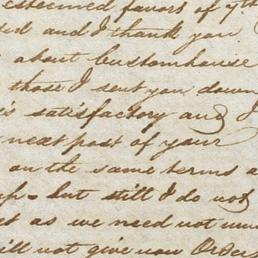 esteemed favors of 7th
and I thank you
about Customhouse
those I sent you down
is satisfactory and I
next post of your
on the same terms a
up - but still I do not
st as we need not
ill not give you Orders